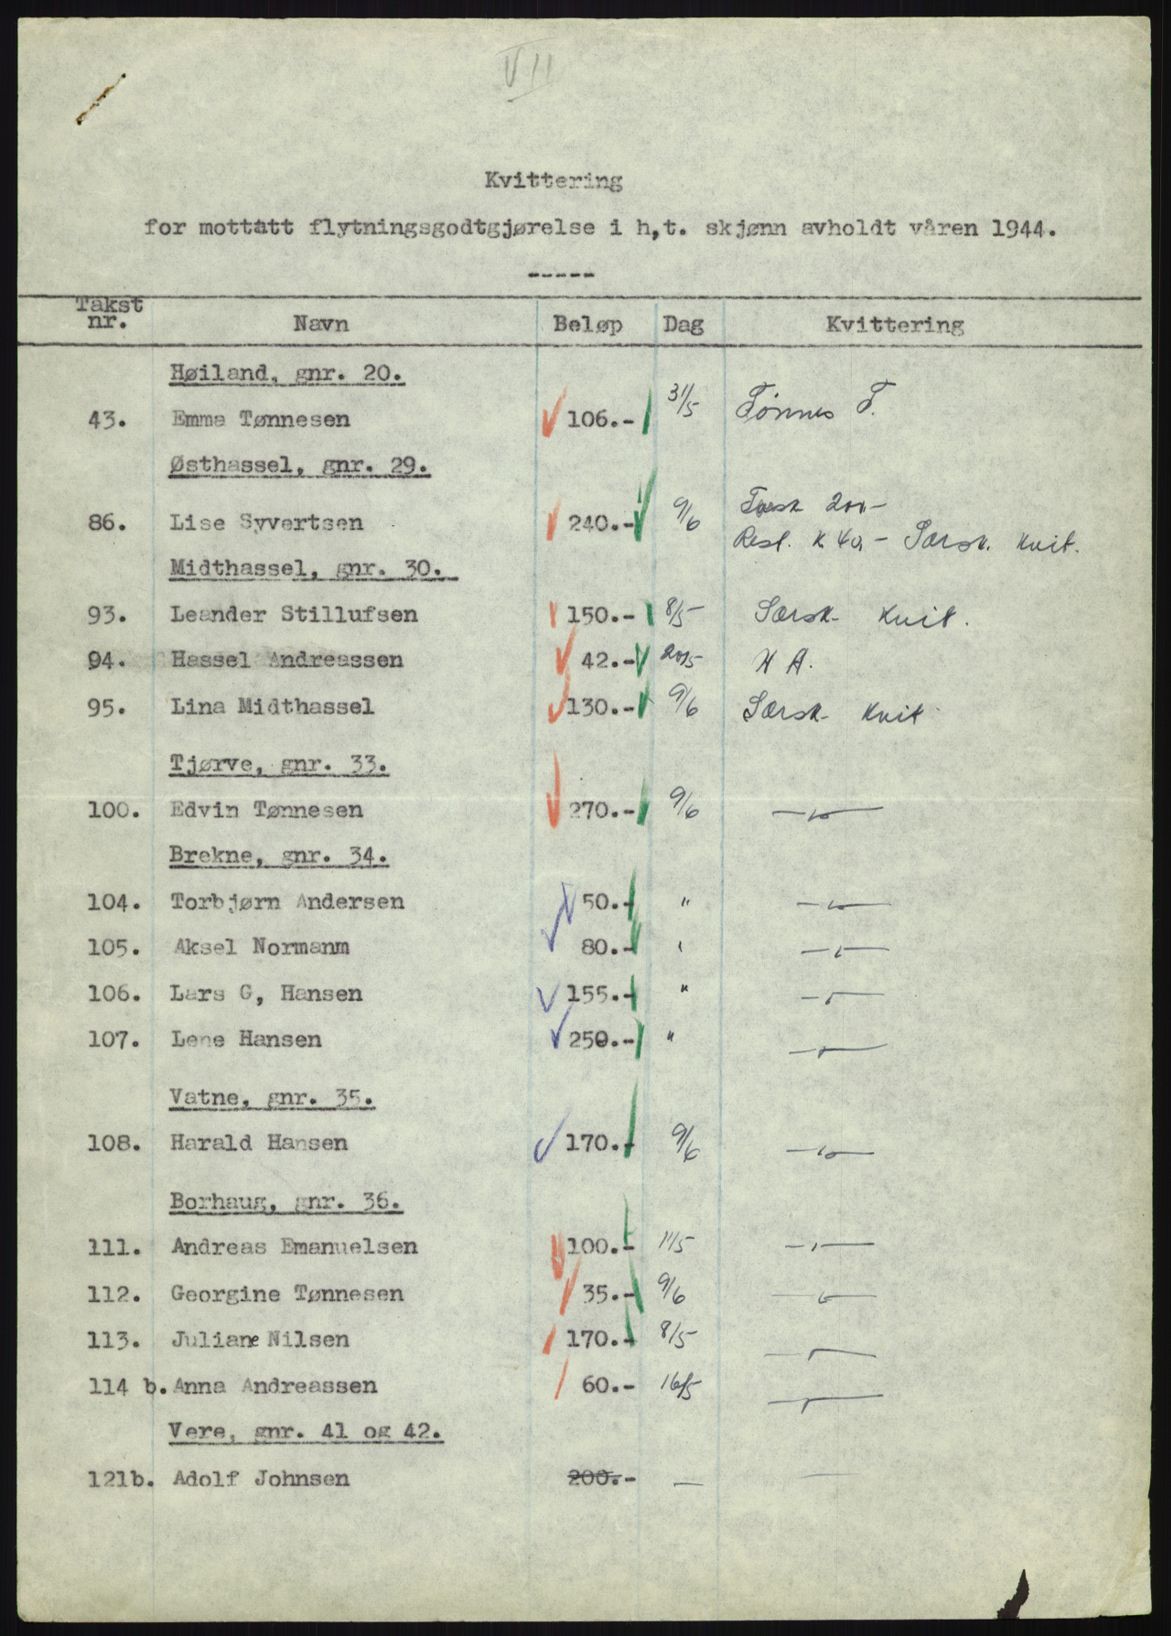 VII
Kvittering
for mottatt flytningsgodtgjørelse i h,t. skjønn avholdt våren 1944.
-----
Takst nr. Navn Beløp Dag Kvittering
Høiland, gnr. 20.
43. Emma Tønnesen 106.- 31/5 Tønnes T.
Østhassel, gnr. 29.
86. Lise Syvertsen 240.- 9/6 200-
Rest. k 40,- Særsk. kvit.
Midthassel, gnr. 30.
93. Leander Stillufsen 150.- 8/5 Særsk. kvit.
94. Hassel Andreassen 42.- 20/5 H A.
95. Lina Midthassel 130.- 9/6 Særsk. kvit
Tjørve, gnr. 33.
100. Edvin Tønnesen 270.- 9/6 —"—
Brekne, gnr. 34.
104. Torbjørn Andersen 50.- " —"—
105. Aksel Normanm 80.- " —"—
106. Lars G, Hansen 155.- " —"—
107. Lene Hansen 250.- " —"—
Vatne, gnr. 35.
108. Harald Hansen 170.- 9/6 —"—
Borhaug, gnr. 36.
111. Andreas Emanuelsen 100.- 11/5 —"—
112. Georgine Tønnesen 35.- 9/6 —"—
113. Juliane Nilsen 170.- 8/5 —"—
114 b. Anna Andreassen 60.- 16/5 —"—
Vere, gnr. 41 og 42.
121b. Adolf Johnsen 200.- — —